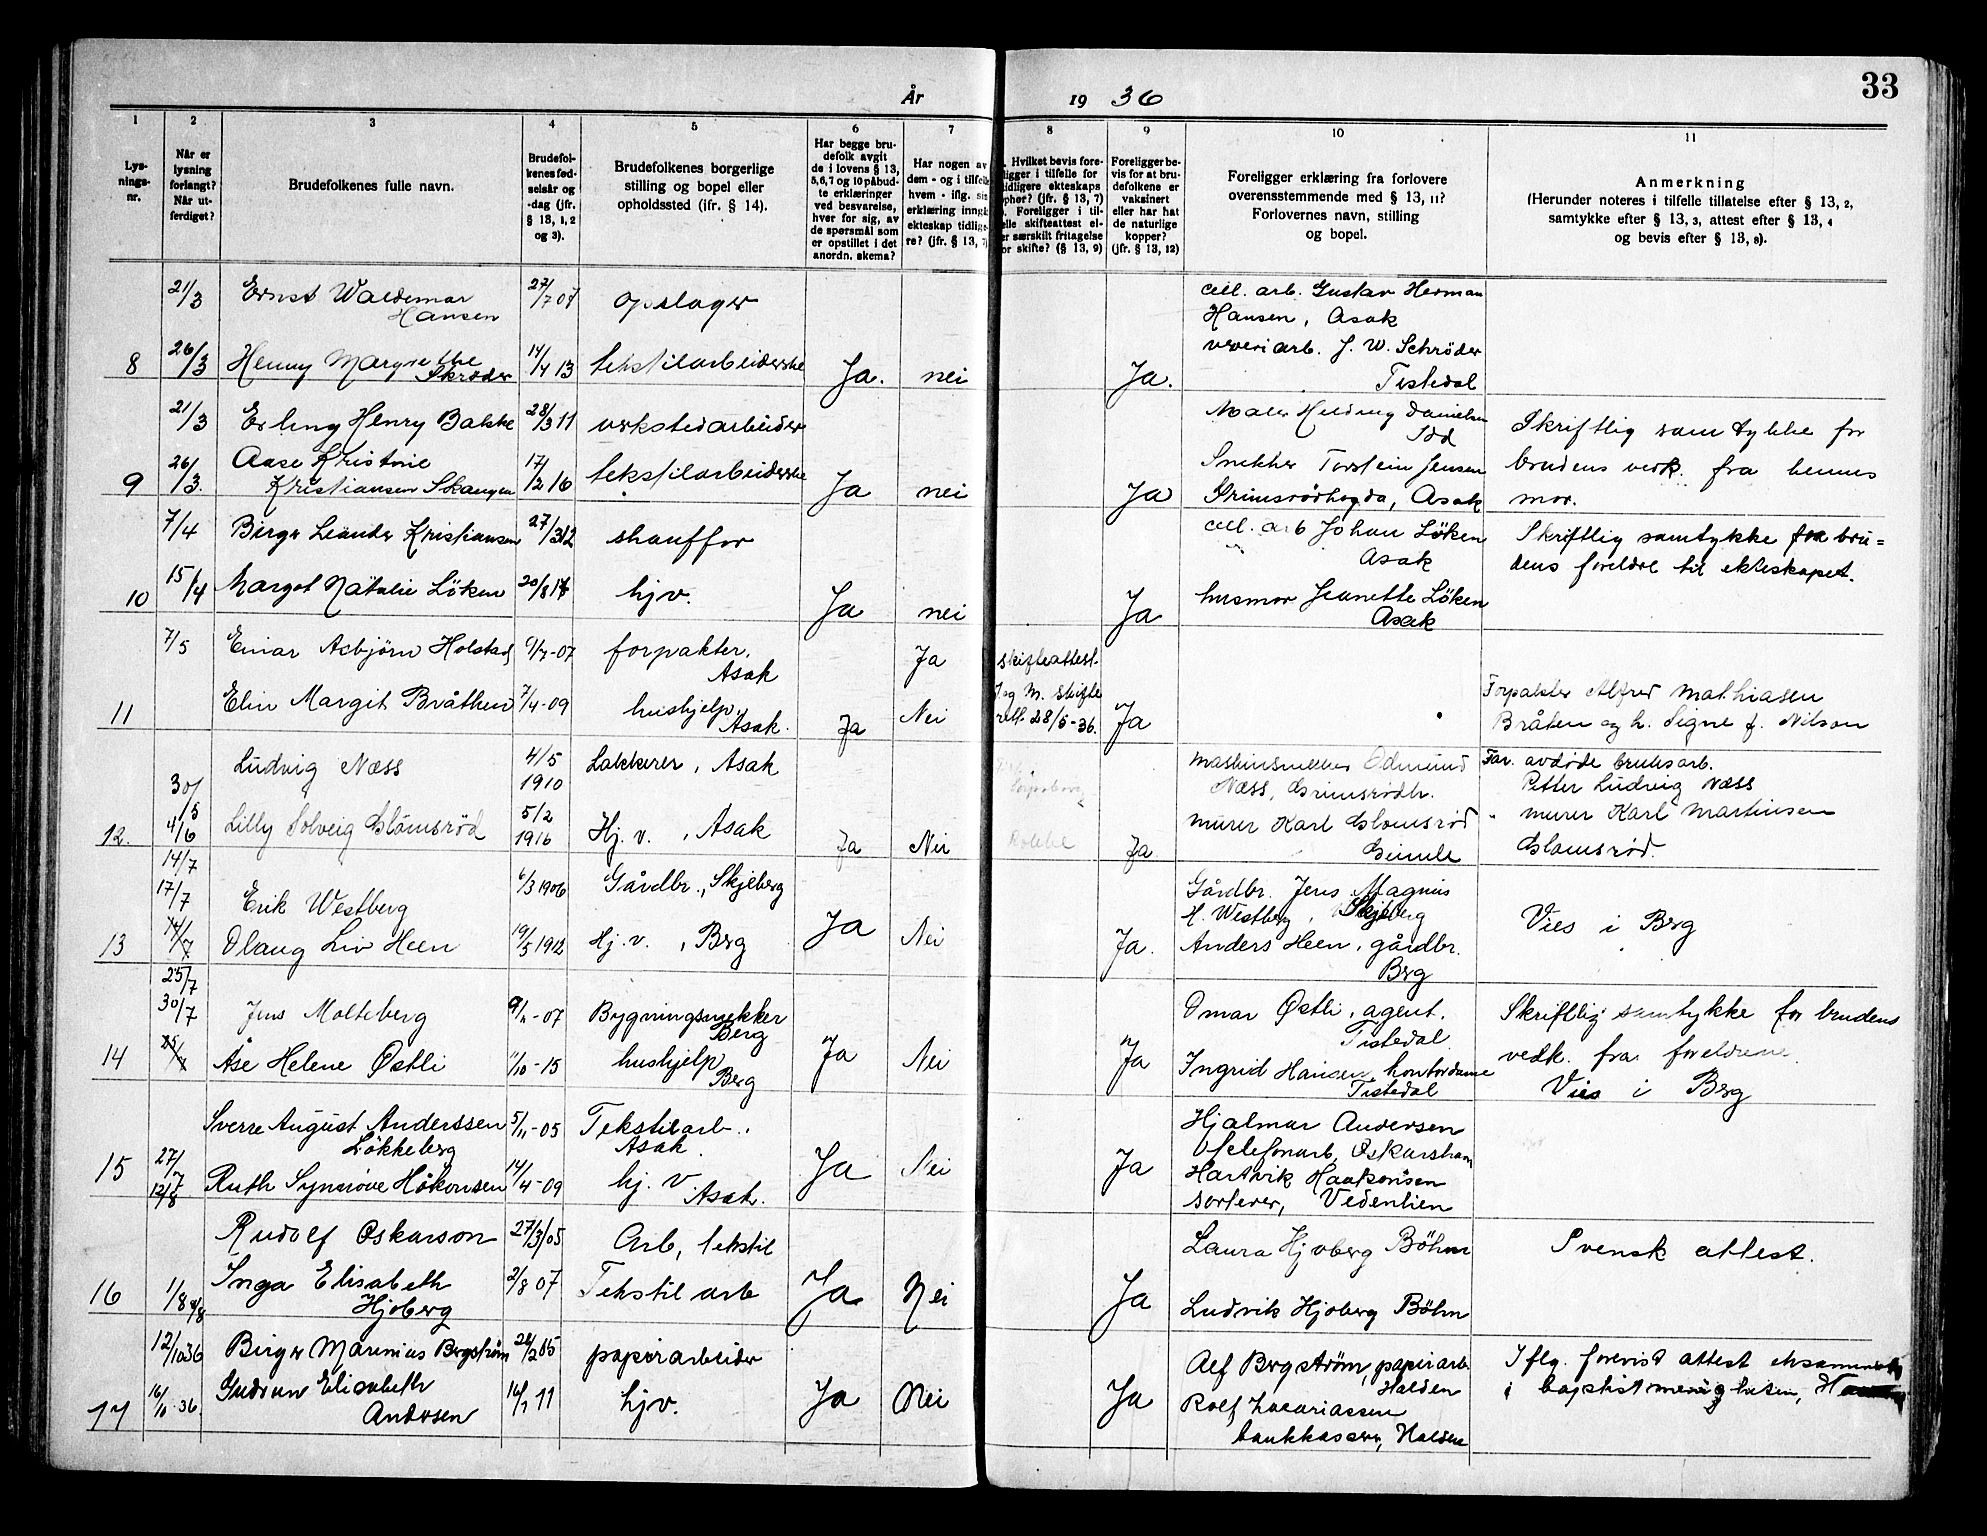 33
År 1936
1 2 3 4 5 6 7 8 9 10 11
Lys-
nings-
nr.
Når er
lysning
forlangt?
Når ut-
ferdiget?
Brudefolkenes fulle navn.
Brudefol-
kenes fød-
selsår og
-dag (jfr.
§ 13, 1, 2
og 3).
Brudefolkenes borgerlige
stilling og bopel eller
opholdssted (ifr. § 14).
Har begge bru-
defolk avgit
de i lovens § 13,
5,6,7 og 10 påbud-
te erklæringer
ved besvarelse,
hver for sig, av
de spørsmål som
er opstillet i det
anordn. skema?
Har nogen av
dem - og i tilfelle
hvem - iflg. si
erklæring inng
ekteskap tidlig
re? (jfr. § 13, 7)
Hvilket bevis fore-
ligger i tilfelle for
idligere ekteskaps
ophør? (jfr. § 13, 7)
Foreligger i til-
elle skifteattest el-
er særskilt fritagelse
or skifte? (§ 13, 9)
Foreligger be-
vis for at bru-
defolkene er
vaksinert
eller har hat
de naturlige
kopper?
(jfr. § 13, 12)
Foreligger erklæring fra forlovere
overensstemmende med § 13, 11?
Forlovernes navn, stilling
og bopel.
Anmerkning
(Herunder noteres i tilfelle tillatelse efter § 13, 2,
samtykke efter § 13, 3, attest efter § 13, 4
og bevis efter § 13, 8).
21/3 Ernst Waldemar
Hansen
27/7 07 opslager
cell. arb. Gustav Herman
Hansen, Asak
8 26/3 Henny Margrethe
Skrøder
14/4 13 tekstilarbeiderske Ja. nei Ja.
veveriarb. J. W. Schrøder
Tistedal
21/3 Erling Henry Bakke 28/3 11 verkstedarbeider
Maler Hilding Danielsen
Idd
Skriftlig samtykke for
brudens vedk. fra hennes
mor.
9 26/3. Aase Kristine
Kristiansen Skaugen
17/12 16 tekstilarbeiderske Ja nei Ja
Snekker Torstein Jensen
Grimsrødhøgda, Asak
7/4 Birger Leander Kristiansen 27/3 12 shauffør
cell. arb Johan Løken
Asak
Skriftlig samtykke fra bru=
dens foreldre til ekteskapet.
10 15/4 Margot Natalie Løken 20/8 17 hjv. Ja nei Ja
husmor Jeanette Løken
Asak
7/5 Einar Asbjørn Holstad 6/7-07 forpakter,
Asak
Ja skifteattest
11 Elin Margit Bråthen 7/4-09 hushjelp,
Asak.
Ja Nei
fog M. skifte
rett. 28/5-36. Ja
Forpakter Alfred Mathiasen
Bråten og h. Signe f. Nilson
Ludvig Næss 4/5
1910
Lakkerer, Asak
Maskinsnekker Odmund
Næss, Grimsrødh.
Far. avdøde bruksarb.
Petter Ludvig Næss
12. 30/5
4/6
Lilly Solveig Glomsrød 5/2
1916
Hj. v. , Asak Ja Nei Ja
murer Karl Glomsrød
Gimle
" murer Karl Martinsen
Glomsrød.
14/7
17/7
Erik Westberg 6/3 1906 Gårdbr., Skjeberg
Gårdbr. Jens Magnus
H. Westberg, Skjeberg
13 14/7 Olaug Liv Heen 19/5 1912 Hj. v. , Berg Ja Nei Ja.
Anders Heen, gårdbr.
Berg
Vies i Berg
25/7
30/7
Jens Molteberg 9/11-07 Bygningsnekker
Berg
Omar Østli, agent.
Tistedal
Skriftlig samtykke for brudens
vedk. fra foreldrene.
Vies i Berg
14 25/7 Åse Helene Østli 11/10-15 hushjelp
Berg
Ja Nei Ja
Ingrid Hansen, kontordame
Tistedal
Sverre August Anderssen
Løkkeberg
5/11-05 Tekstilarb.,
Asak.
Hjalmar Andersen
telefonarb, Oskarsham
15 27/7
12/8
Ruth Synnøve Håkonsen 14/4-09 hj. v.
Asak.
Ja Nei Ja
Hartvik Haakonsen
sorterer, Vedenlien
Rudolf Oskarson 27/3/05 Arb, tekstil
Laura Hjoberg Böhm
Svensk attest.
16 1/8 4/8 Inga Elisabeth
Hjoberg
2/8 07 Tekstil arb Ja Nei Ja
Ludvik Hjoberg Böhm
12/10 36 Birger Marinius Bergstrøm 24/2 05 papirarbeider
Alf Bergstrøm, papirarb.
Halden
Iflg. forevist attest
i baptistmenigheten,
17 16/10-36. Gudrun Elisabeth
Andersen
16/7 11 hjv. Ja Nei Ja
Rolf Zacariassen
bankkasser, Halden